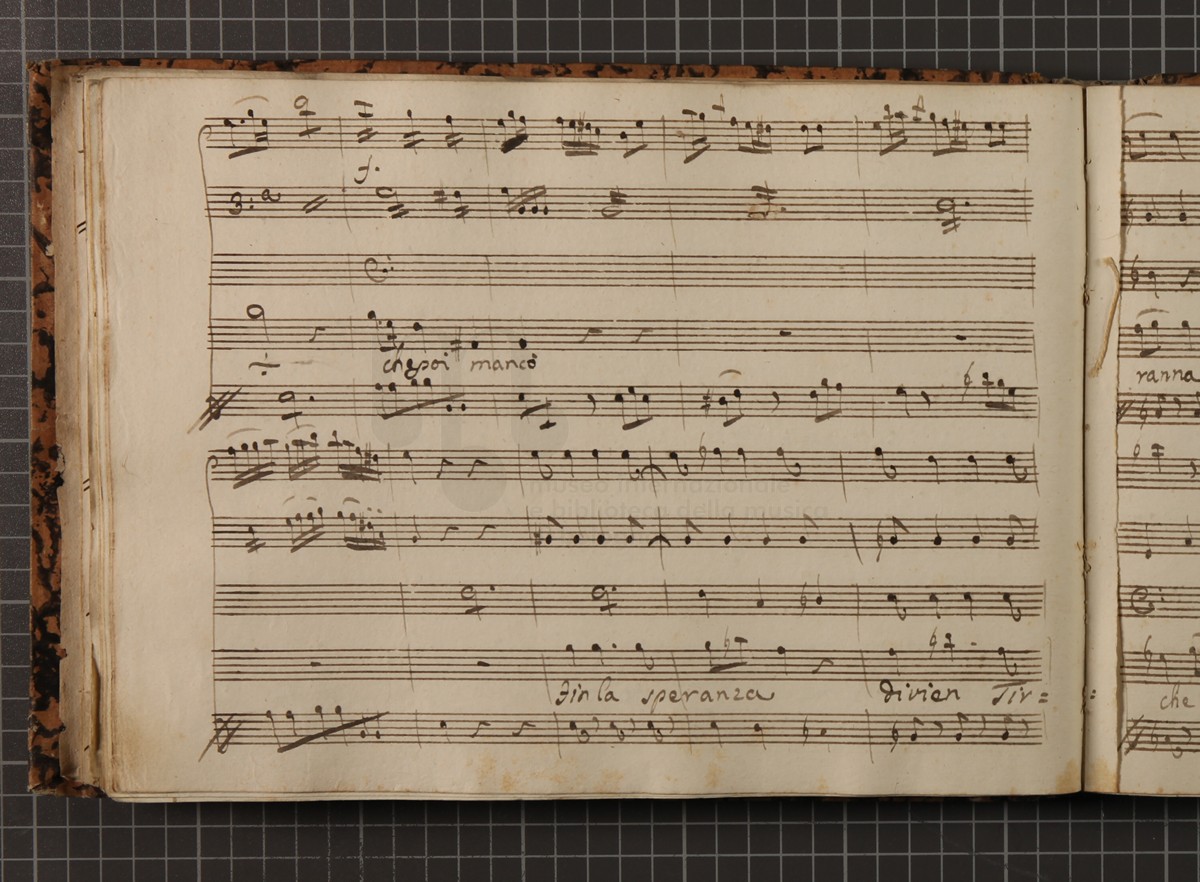 f.
3: a
che poi mancò
ranna
museo internazionale
e biblioteca della musica
Fin la speranza divien Tir=
che